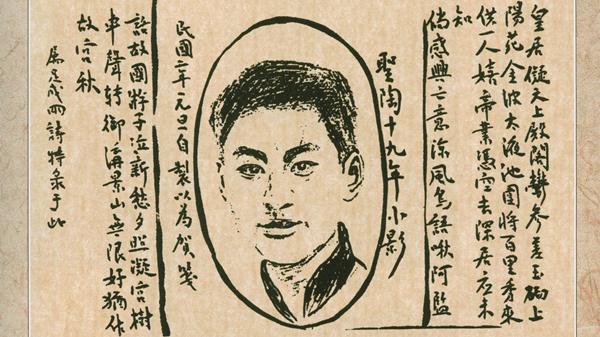 皇居儗天上殿閣鬱參差玉砌上
陽苑金波太液池囿將百里秀來
供一人嬉帝業憑空去深居應未
知
倘感興亡意涼風鳥語啾阿監
聖陶十九年小影
民國二年元旦自製以為賀箋
話故國游子泣新愁夕照凝宮樹
車聲轉御溝景山無限好猶作
故宮秋
足成兩詩特录于此